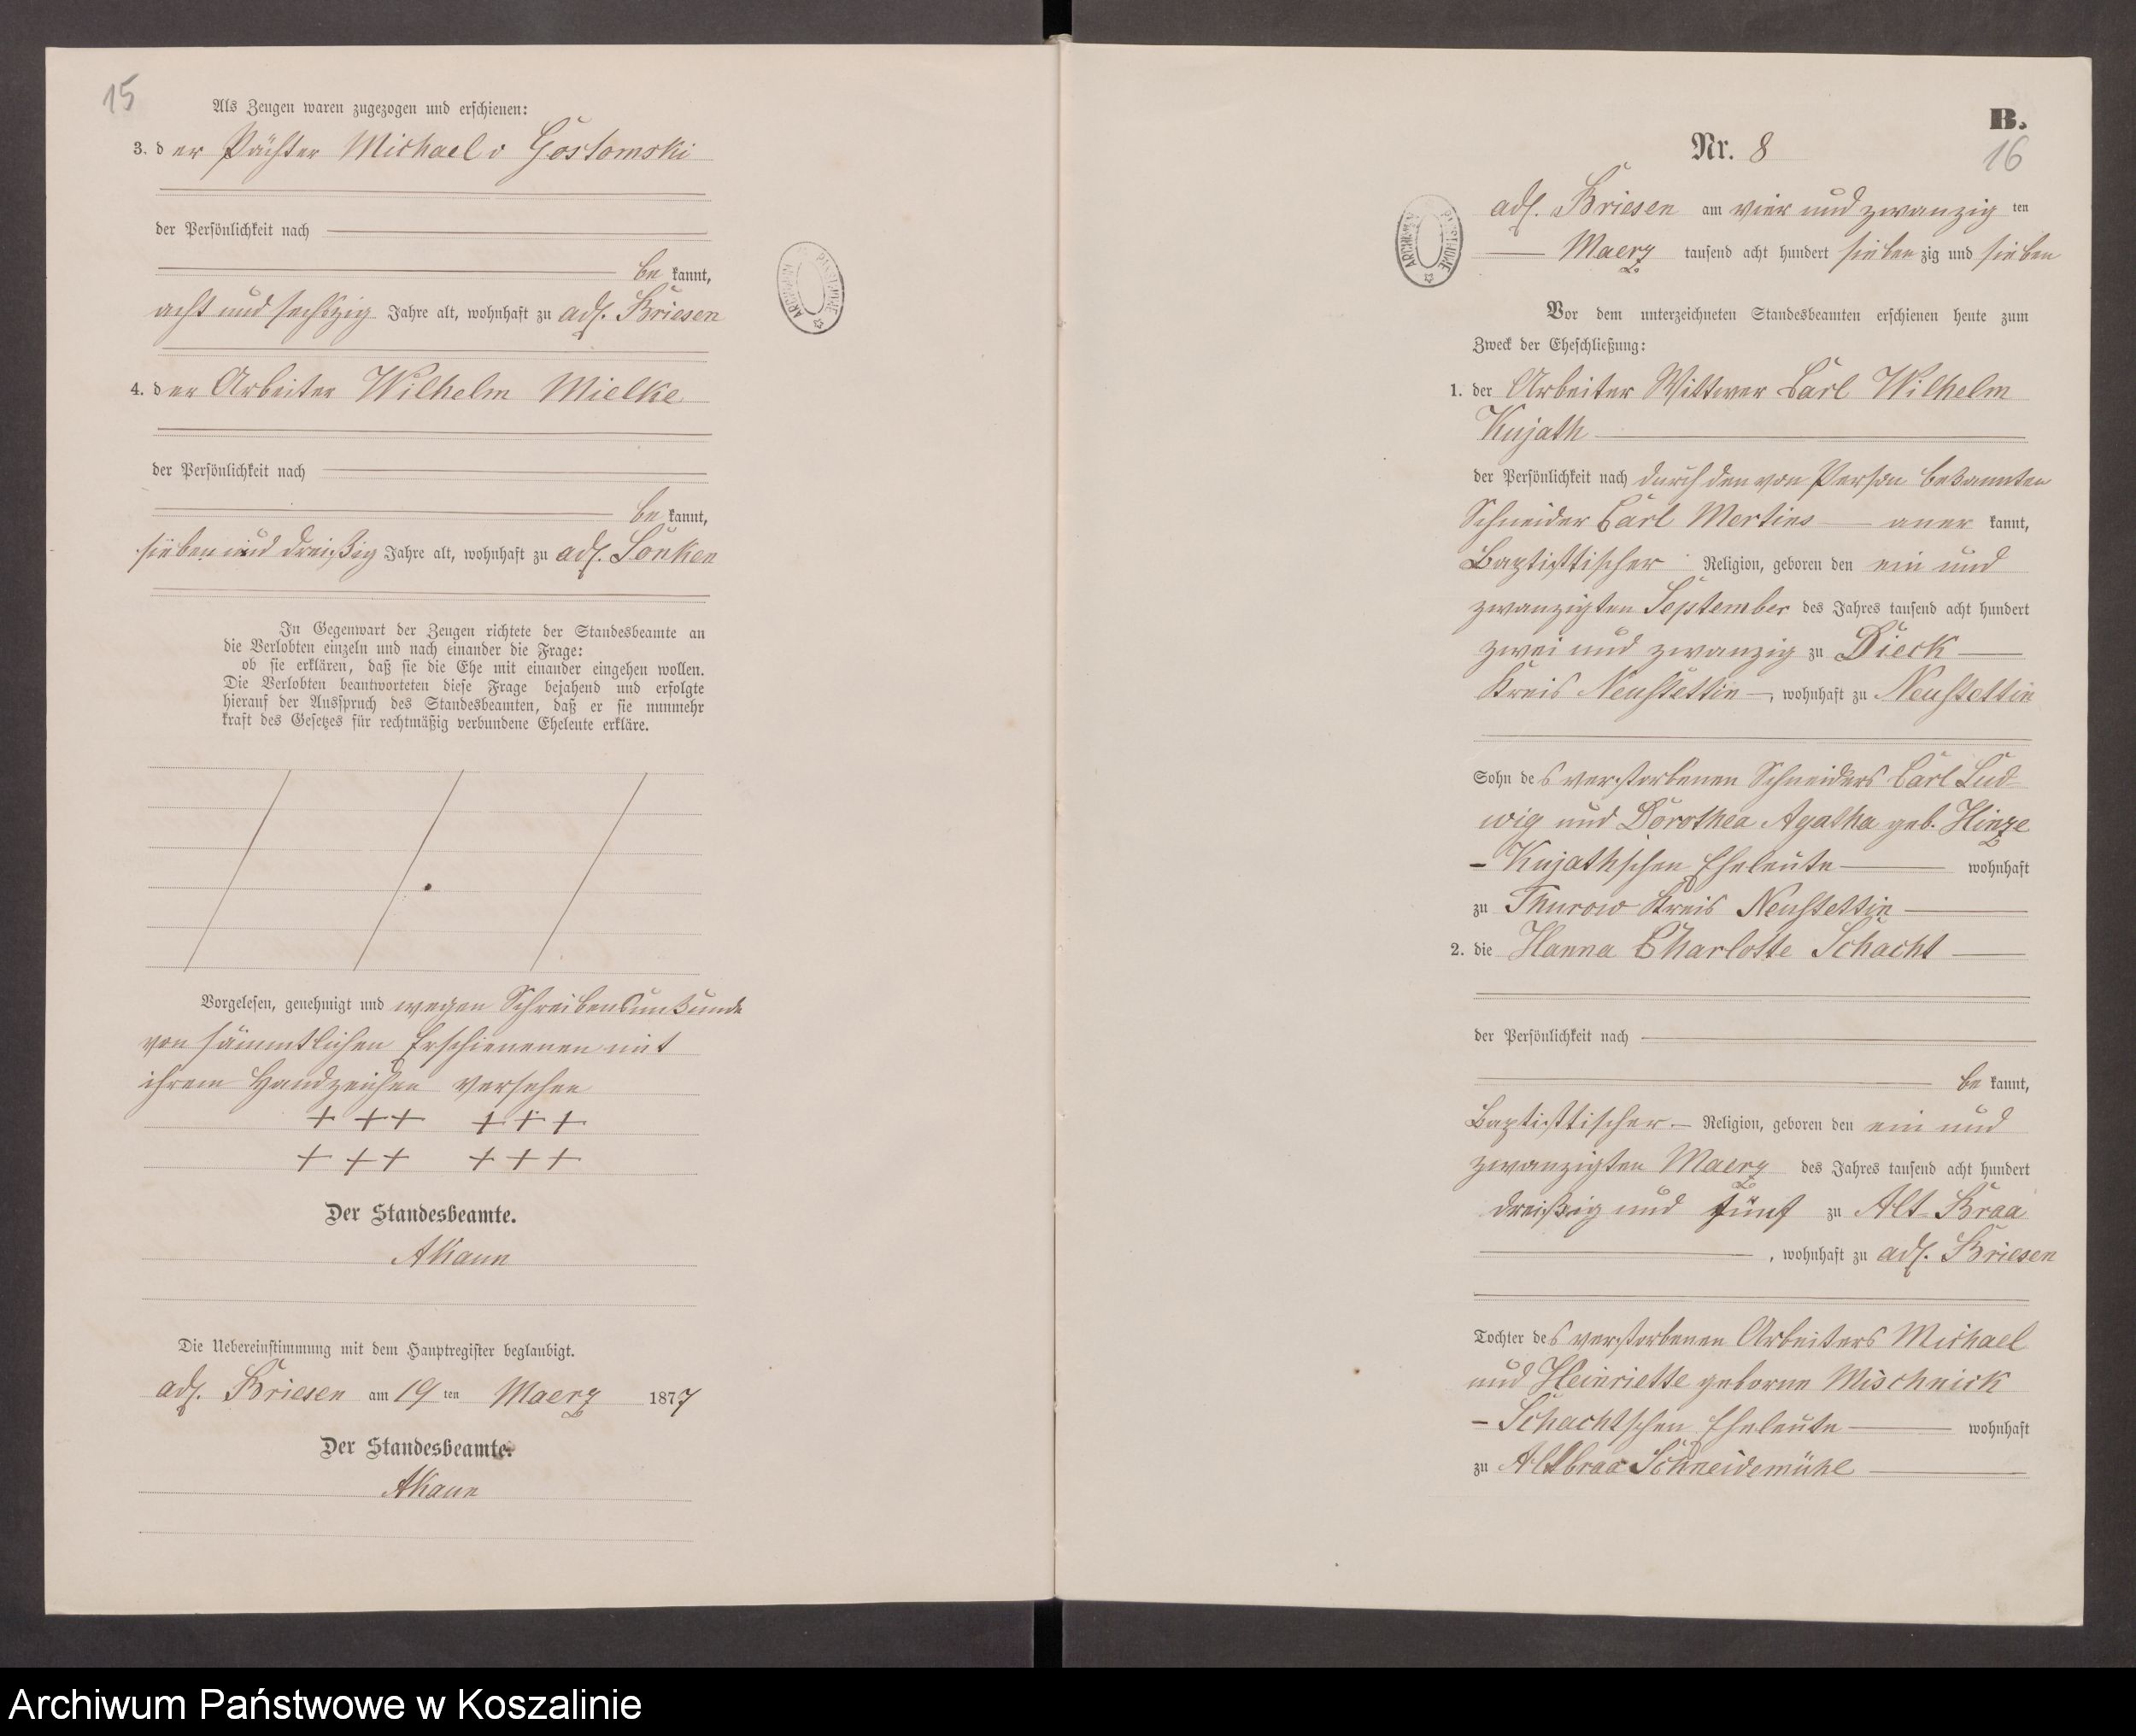 15
Als Zeugen waren zugezogen und erschienen:
3. der Pächter Michael v Gostomski
der Persönlichkeit nach
bekannt,
acht und sechszig Jahre alt, wohnhaft zu adl. Briesen
4. der Arbeiter Wilhelm Mielke
der Persönlichkeit nach
bekannt,
sieben und dreißig Jahre alt, wohnhaft zu adl. Lonken
In Gegenwart der Zeugen richtete der Standesbeamte an
die Verlobten einzeln und nach einander die Frage:
ob sie erklären, daß sie die Ehe mit einander eingehen wollen.
Die Verlobten beantworteten diese Frage bejahend und erfolgte
hierauf der Ausspruch des Standesbeamten, daß er sie nunmehr
kraft des Gesetzes für rechtmäßig verbundene Eheleute erkläre.
Vorgelesen, genehmigt und wegen Schreibensunkunde
von sämmtlichen Erschienenen mit
ihrem Handzeichen versehen
+ + + + + +
+ + + + + +
Der Standesbeamte.
AKaun
Die Uebereinstimmung mit dem Hauptregister beglaubigt.
adl. Briesen am 19 ten Maerz 1877
Der Standesbeamte.
AKaun
ARCHIWUM PAŃSTWOWE
B.
Nr. 8
16
ARCHIWUM PAŃSTWOWE
adl. Briesen am vier und zwanzig ten
Maerz tausend acht hundert sieben zig und sieben
Vor dem unterzeichneten Standesbeamten erschienen heute zum
Zweck der Eheschließung:
1. der Arbeiter Wittwer Carl Wilhelm
Kujath
der Persönlichkeit nach durch den von Person bekannten
Schneider Carl Mertins anerkannt,
Baptisttischer Religion, geboren den ein und
zwanzigten September des Jahres tausend acht hundert
zwei und zwanzig zu Dieck
Kreis Neustettin, wohnhaft zu Neustettin
Sohn des verstorbenen Schneiders Carl Lud-
wig und Dorothea Agatha geb. Hinze
- Kujath'schen Eheleute wohnhaft
zu Thurow Kreis Neustettin
2. die Hanna Charlotte Schacht
der Persönlichkeit nach
bekannt,
Baptisttischer Religion, geboren den ein und
zwanzigten Maerz des Jahres tausend acht hundert
dreißig und fünf zu Alt-Braa
, wohnhaft zu adl. Briesen
Tochter des verstorbenen Arbeiters Michael
und Heinriette geborne Mischnick
- Schachtschen Eheleute wohnhaft
zu Altbraa Schneidemühl
Archiwum Państwowe w Koszalinie